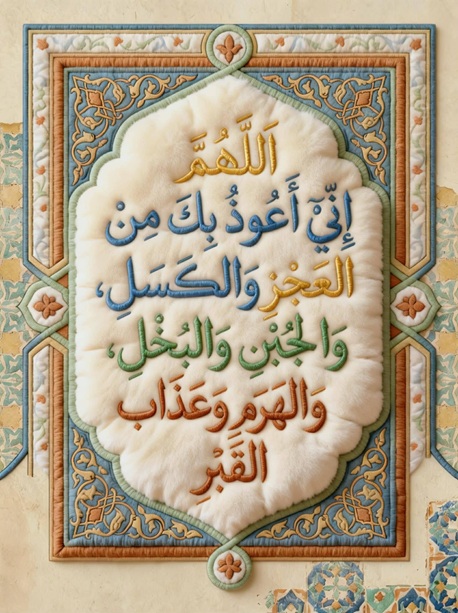 اَللَّهُمَّ
إِنِّيْ أَعُوذُ بِكَ مِنْ
العَجْزِ وَالكَسَلِ،
وَالجُبْنِ وَالبُخْلِ،
وَالهَرَمِ وَعَذَاب
القَبْرِ